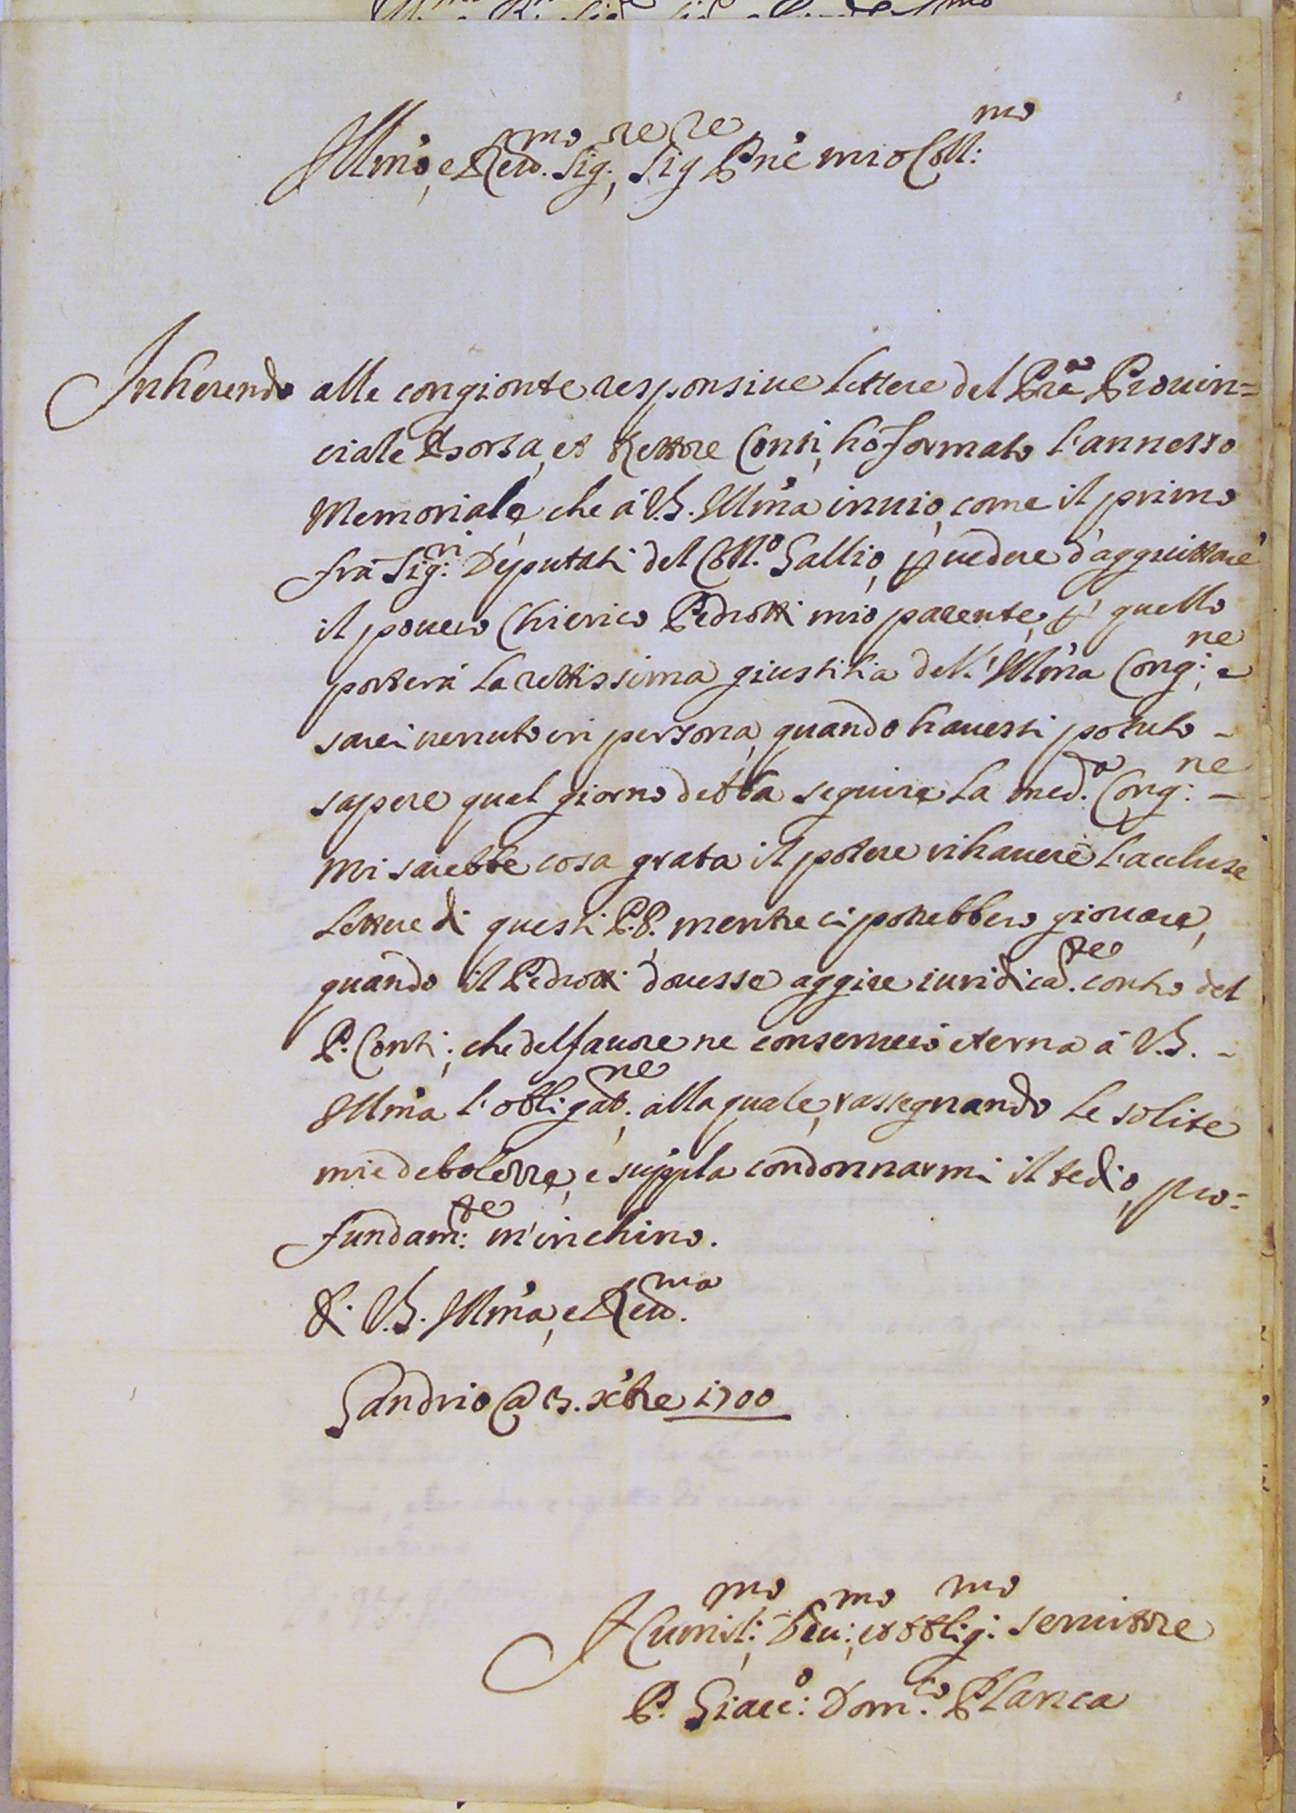 Illmo, e Reud.mo Sig.re, Sig.re Pne mio Coll:mo
Inherendo alle congionte responsiue lettere del Pre Prouin=
ciale Borsa, et Rettore Conti, hò formato l'annesso
Memoriale, che á V.S. Illma inuio, come il primo
frà Sig:ri Deputati del Coll.o Gallio, p uedere d'aggiuttare
il pouero Chierico Pedrotti mio parente, p quello
porterá la rettissima giustitia dell'Illma Cong:ne, e
sarei uenuto in persona, quando hauessi potuto -
sapere qual giorno debba seguire la med.a Cong:ne -
Mi sarebbe cosa grata il potere rihauere l'accluse
lettere di questi P.P. mentre ci potrebbero giouare,
quando il Pedrotti douesse aggire iuridicam.te contro del
P. Conti; che del fauore ne conseruerò eterna á V.S. -
Illma l'obligat:ne, alla quale, rassegnando le solite
mie debolezze, e suppla condonnarmi il tedio, pro=
fundam:te m'inchino.
Di V.S. Illma, e Reu.ma
Gandrio @ 13. Xbre 1700
Humil:mo, Deu:mo, et obblig:mo seruitore
P. Giacc:o Dom.co Planca